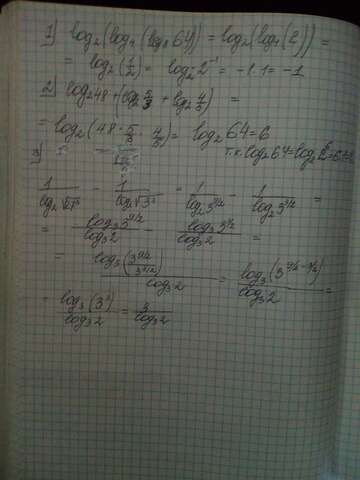 1) log₂(log₄(log₈64)) = log₂(log₄(2)) =
= log₂(1/2) = log₂2⁻¹ = -1·1 = -1
2) log₂48 + (log₂5/3 + log₂4/5) =
= log₂(48 · 5/3 · 4/5) = log₂64 = 6
т.к. log₂64 = log₂2⁶ =
3)
1/log₂√27³ - 1/log₂√3³ = 1/log₂3^(9/2) - 1/log₂3^(3/2) =
= log₃3^(9/2)/log₃2 - log₃3^(3/2)/log₃2 =
= log₃(3^(9/2)/3^(3/2))/log₃2 = log₃(3^(9/2-3/2))/log₃2 =
= log₃(3³)/log₃2 = 3/log₃2